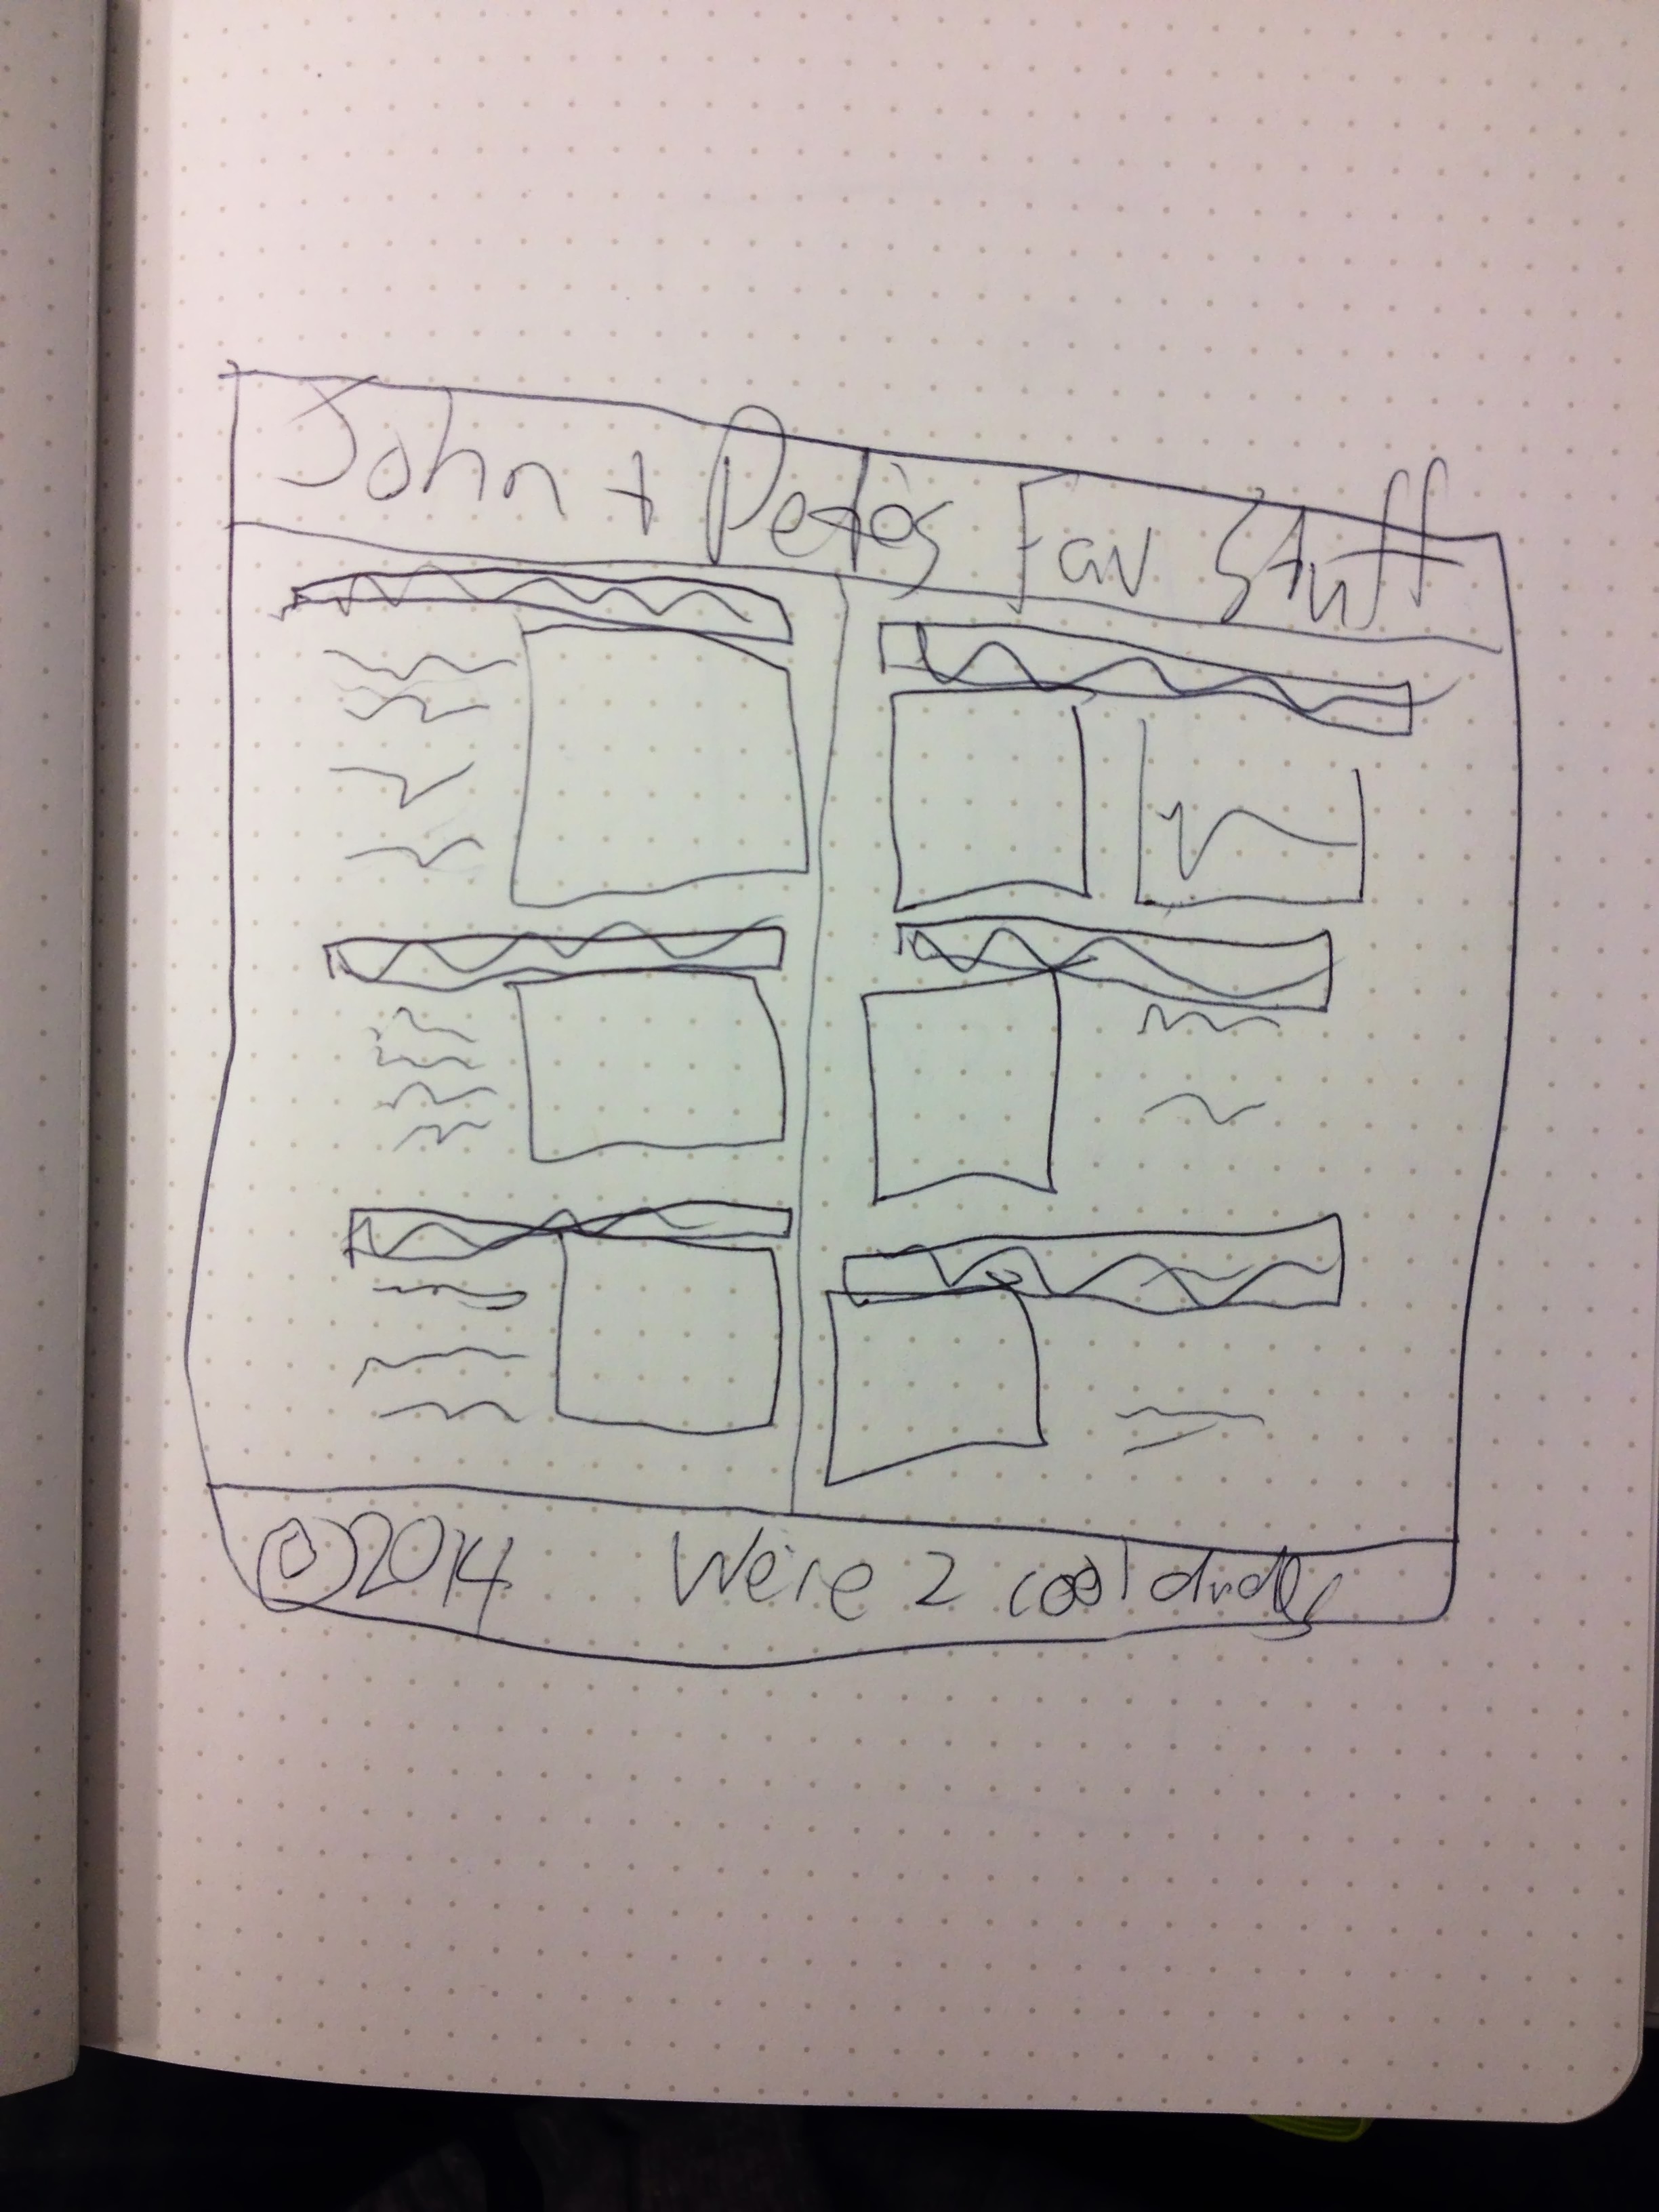 John + Pete's Fav Stuff
©2014 We're 2 cool dudes